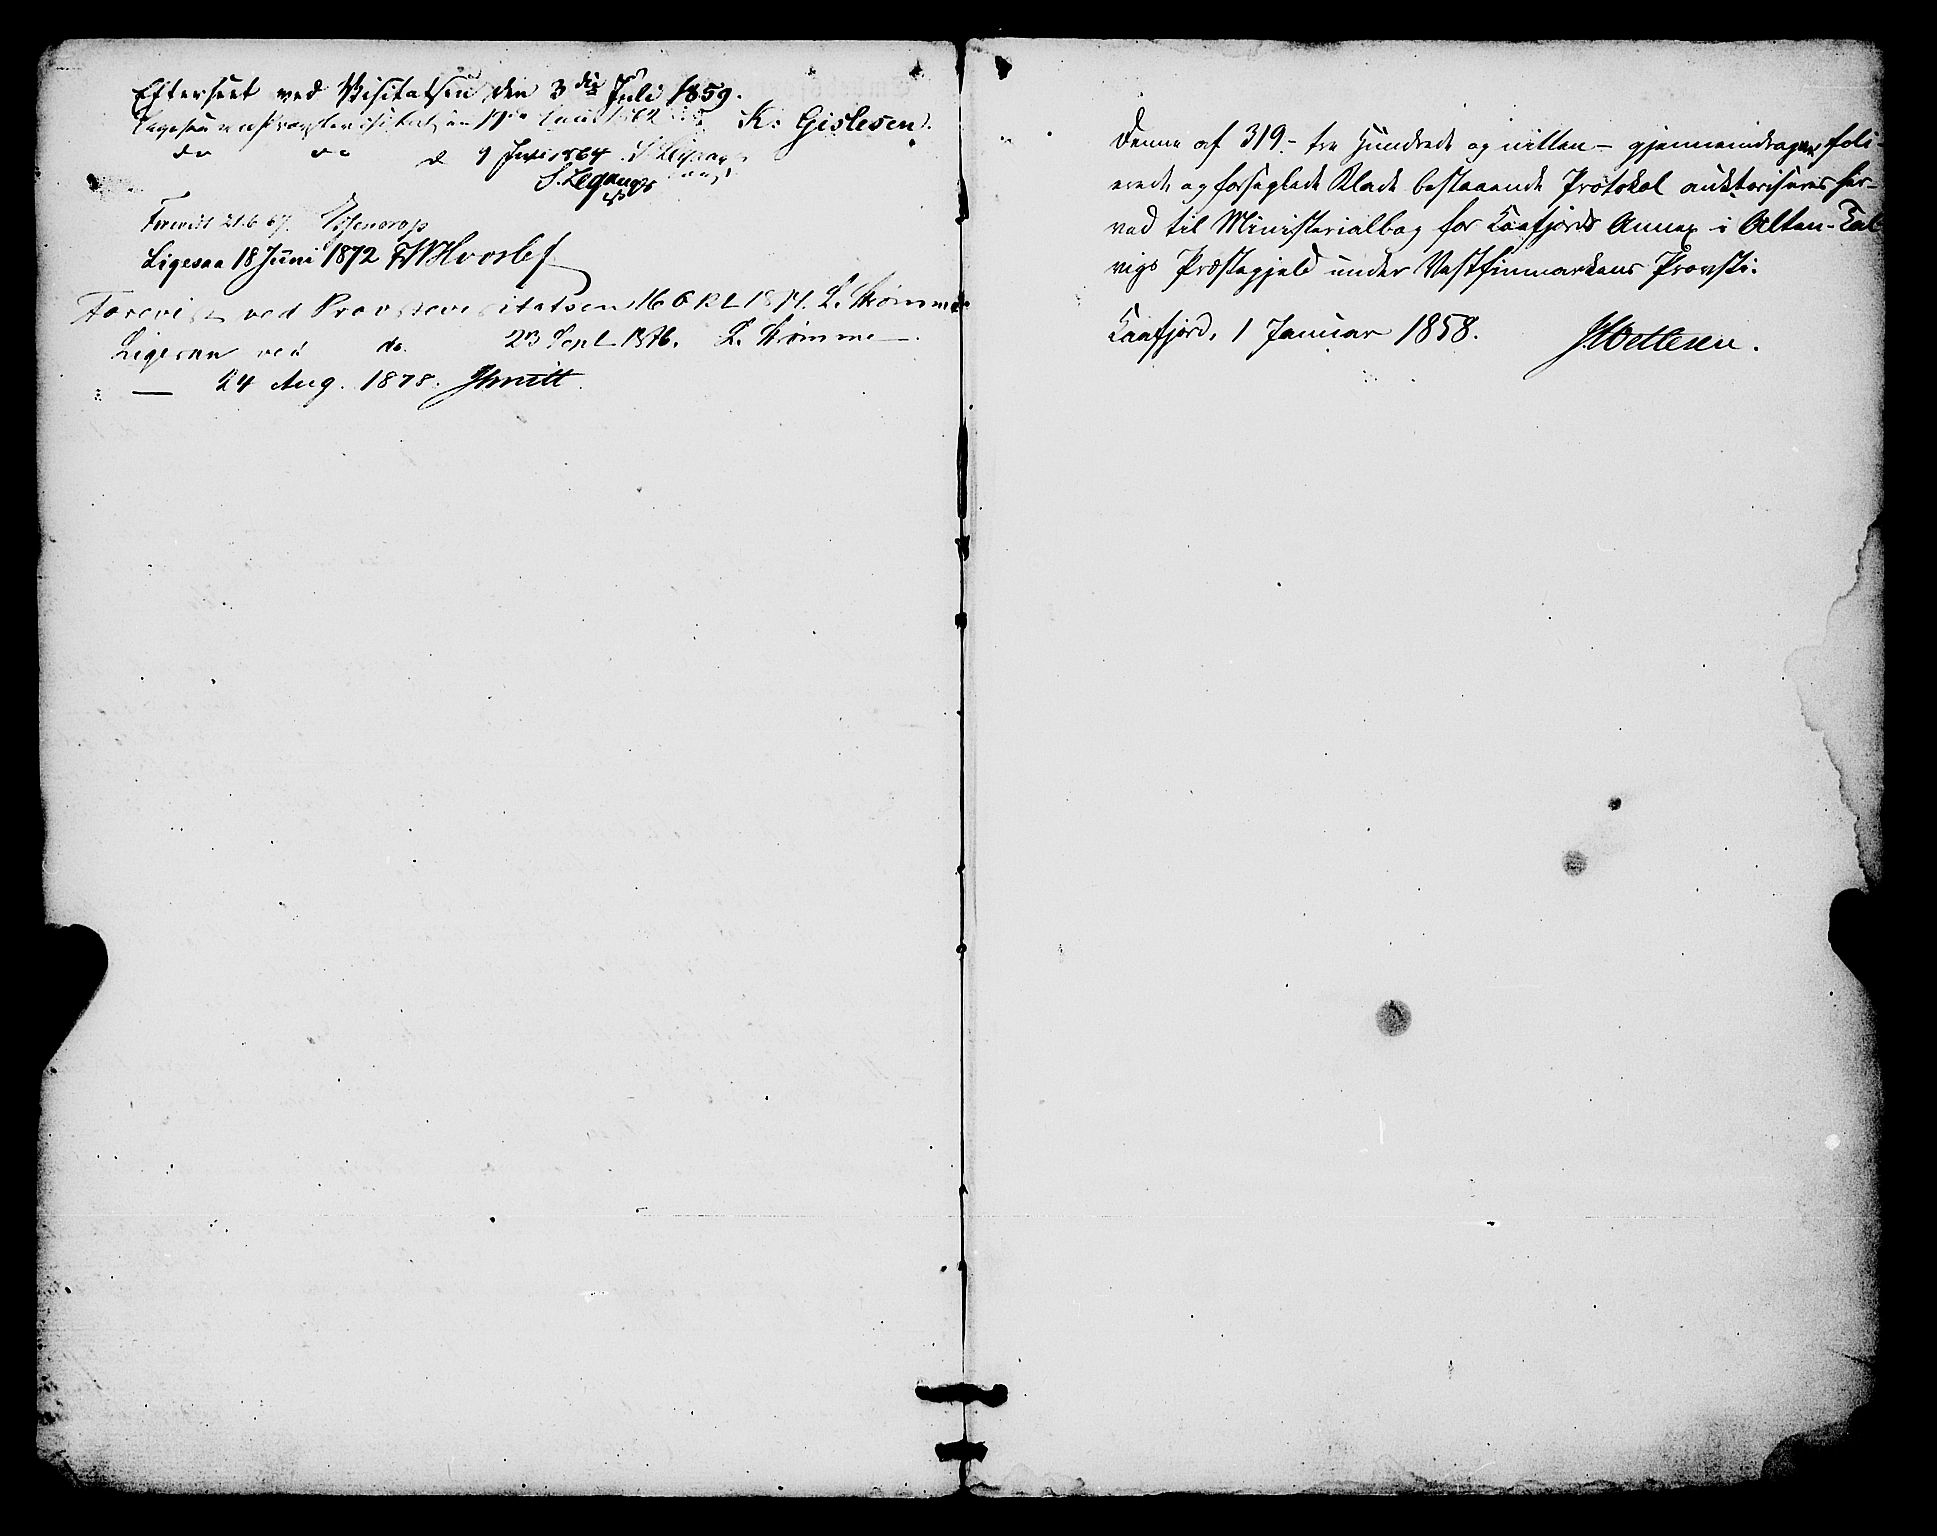 Efterseet ved Visitatsen den 3die Juli 1859.
K. Gislesen.
Ligesaa v Provstevisitatsen 1862
do do d 9 Juli 1864
S. Legangs
Forevist 21.6.67.
Ligesaa 18 Juni 1872 FWHvoslef
Forevist ved Provstevisitatsen 16 Okt 1874. L. Strømme
Ligesaa ved do. 23 Sept 1876. L. Strømme
— 24 Aug. 1878. Smitt.
Denne af 319 - tre Hundrede og nitten - gjennemdragne, foli-
erede og forseglede Blade bestaaende Protokol auktoriseres her-
ved til Ministerialbog for Kaafjords Annex i Alten-Tal
vigs Præstegjeld under Vestfinmarkens Provsti.
Kaafjord, 1 Januar 1858. JWettesen.